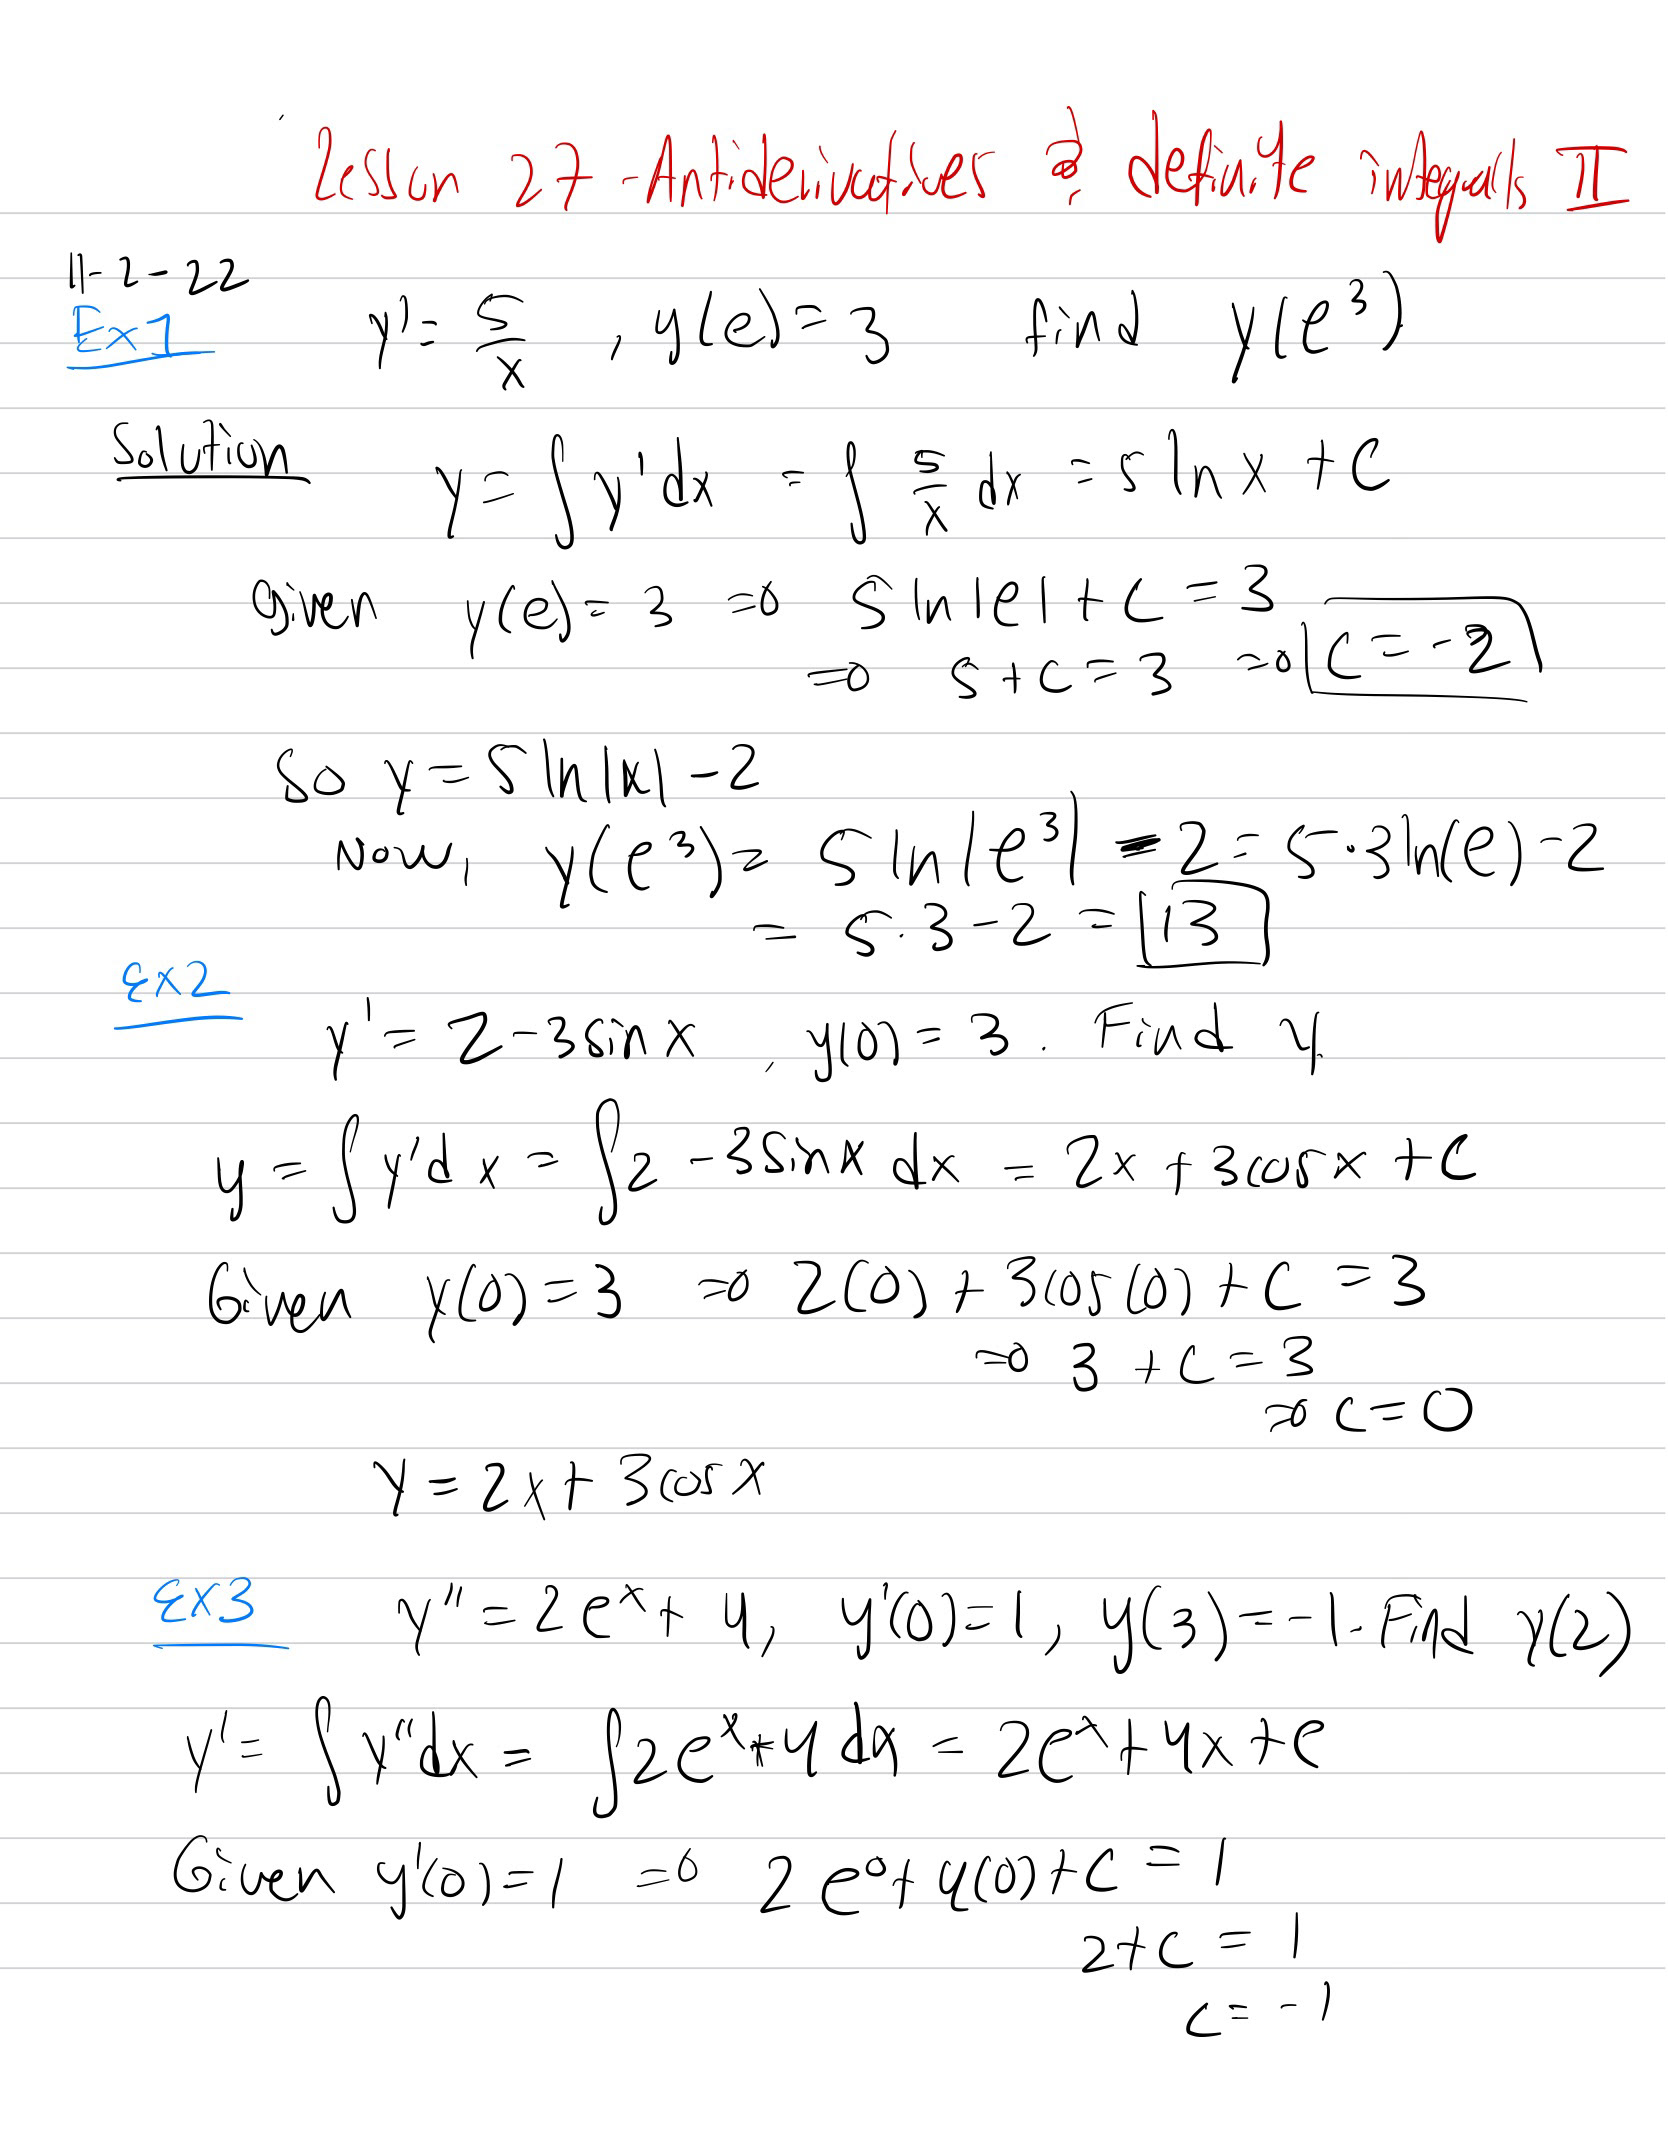 Lesson 27 - Antiderivatives & definite integrals II
11-2-22
Ex1 y' = 5/x , y(e) = 3 find y(e³)
Solution y = ∫ y' dx = ∫ 5/x dx = 5 ln x + C
Given y(e) = 3 => 5 ln|e| + C = 3
=> 5 + C = 3 => C = -2
So y = 5 ln|x| - 2
Now, y(e³) = 5 ln|e³| - 2 = 5·3 ln(e) - 2
= 5·3 - 2 = 13
Ex2
y' = 2 - 3 sin x , y(0) = 3. Find y.
y = ∫ y' dx = ∫ 2 - 3 sin x dx = 2x + 3 cos x + C
Given y(0) = 3 => 2(0) + 3 cos(0) + C = 3
=> 3 + C = 3
=> C = 0
y = 2x + 3 cos x
Ex3 y'' = 2e^x + 4, y'(0) = 1, y(3) = -1. Find y(2)
y' = ∫ y'' dx = ∫ 2e^x + 4 dx = 2e^x + 4x + C
Given y'(0) = 1 => 2e⁰ + 4(0) + C = 1
2 + C = 1
C = -1